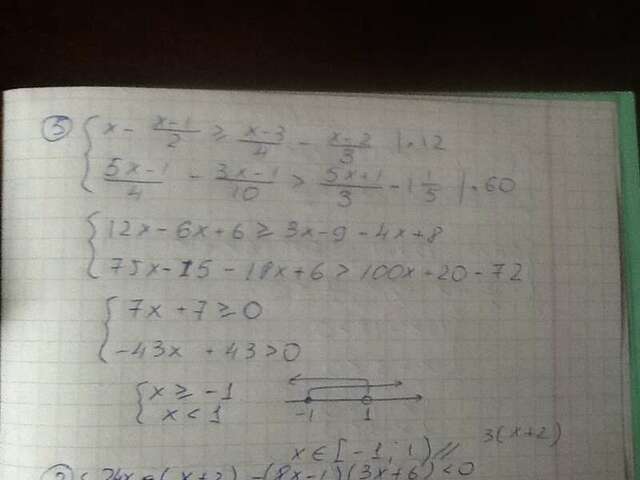 ③ { x - (x-1)/2 ≥ (x-3)/4 - (x-2)/3 | · 12
(5x-1)/4 - (3x-1)/10 > (5x+1)/3 - 1 1/5 | · 60
{ 12x - 6x + 6 ≥ 3x - 9 - 4x + 8
75x - 15 - 18x + 6 > 100x + 20 - 72
{ 7x + 7 ≥ 0
-43x + 43 > 0
{ x ≥ -1
x < 1
-1 1
x ∈ [-1; 1) //
3(x+2)
(x+2) - (8x-1)(3x+6) < 0